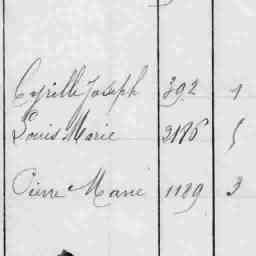 Cyrille Joseph 392 1
Louis Marie 2186 5
Pierre Marie 1189 3